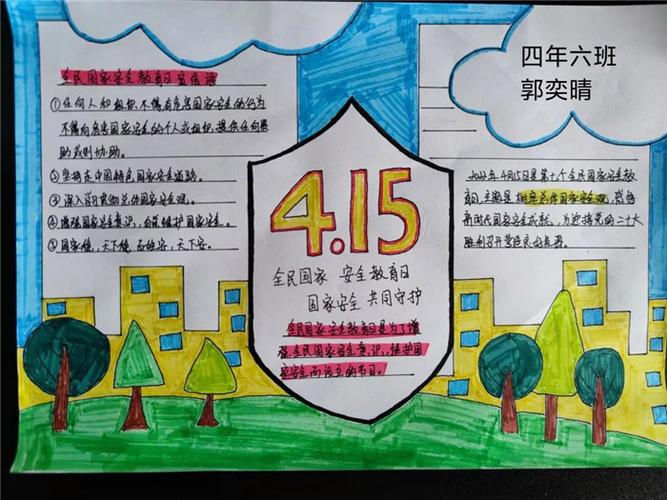 四年六班
郭奕晴
全民国家安全教育日宣传语
①任何人和组织不得有危害国家安全的行为
不得向危害国家安全的个人或组织提供任何资
助或则协助。
②坚持走中国特色国家安全道路。
③深入学习贯彻总体国家安全观。
④增强国家安全意识，自觉维护国家安全。
⑤国家健，天下健，百姓安，天下安。
4.15
全民国家 安全教育日
国家安全 共同守护
全民国家安全教育日是为了增
强全民国家安全意识，维护国
家安全而设立的节日。
2022年4月15日是第七个全民国家安全教
育日,主题是 总体国家安全观，
新时代国家安全成就，为迎接党的二十大
胜利召开营造良好氛围。